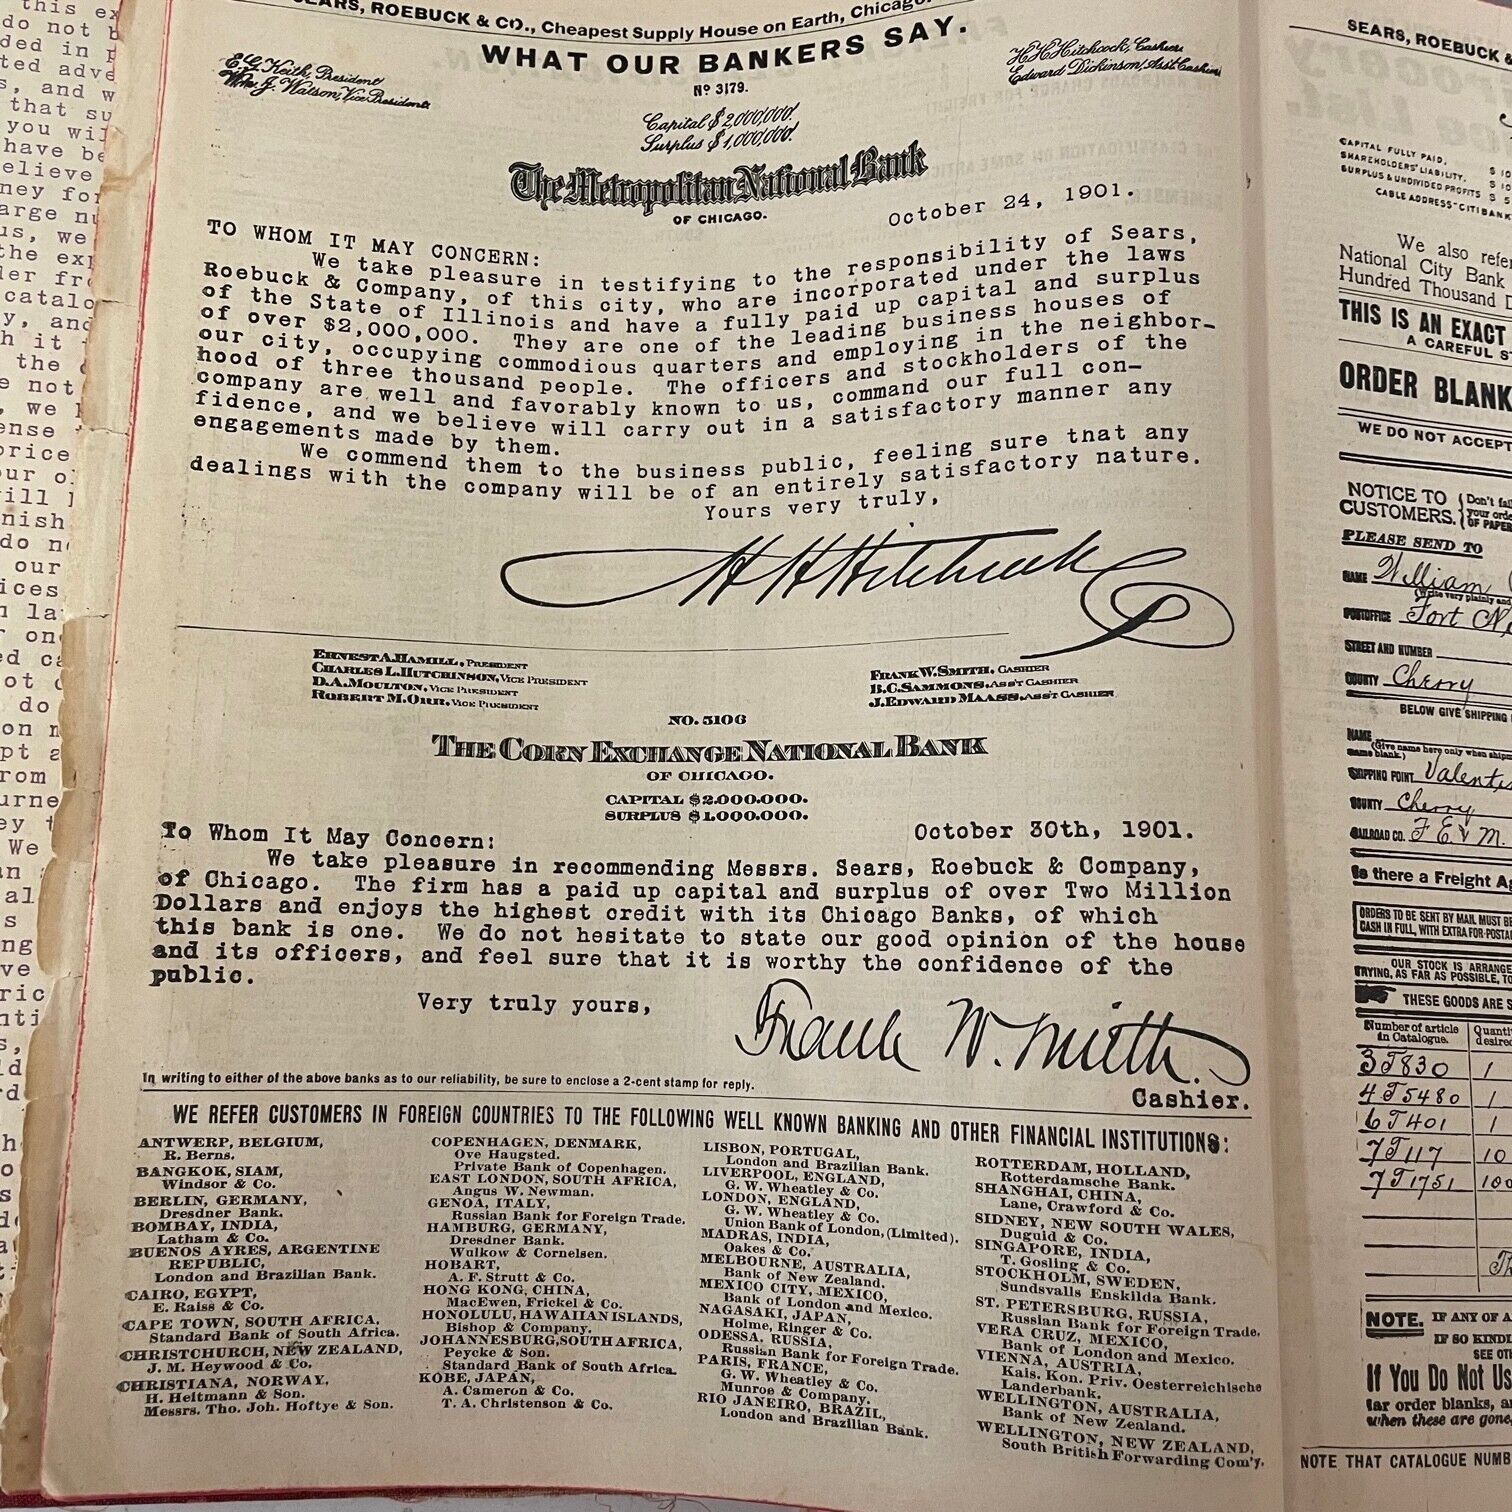 SEARS, ROEBUCK & CO., Cheapest Supply House on Earth, Chicago.
WHAT OUR BANKERS SAY.
E. G. Keith, President
Wm. J. Watson, Vice President
H. H. Hitchcock, Cashier
Edward Dickinson, Asst. Cashier
No 3179.
Capital $2,000,000.
Surplus $1,000,000.
The Metropolitan National Bank
OF CHICAGO.
October 24, 1901.
TO WHOM IT MAY CONCERN:
We take pleasure in testifying to the responsibility of Sears,
Roebuck & Company, of this city, who are incorporated under the laws
of the State of Illinois and have a fully paid up capital and surplus
of over $2,000,000. They are one of the leading business houses of
our city, occupying commodious quarters and employing in the neighbor-
hood of three thousand people. The officers and stockholders of the
company are well and favorably known to us, command our full con-
fidence, and we believe will carry out in a satisfactory manner any
engagements made by them.
We commend them to the business public, feeling sure that any
dealings with the company will be of an entirely satisfactory nature.
Yours very truly,
H H Hitchcock
ERNEST A. HAMILL, PRESIDENT
CHARLES L. HUTCHINSON, VICE PRESIDENT
D. A. MOULTON, VICE PRESIDENT
ROBERT M. ORR, VICE PRESIDENT
FRANK W. SMITH, CASHIER
B. C. SAMMONS, ASS'T CASHIER
J. EDWARD MAASS, ASS'T CASHIER
NO. 5106
THE CORN EXCHANGE NATIONAL BANK
OF CHICAGO.
CAPITAL $2.000.000.
SURPLUS $1.000.000.
To Whom It May Concern:
October 30th, 1901.
We take pleasure in recommending Messrs. Sears, Roebuck & Company,
of Chicago. The firm has a paid up capital and surplus of over Two Million
Dollars and enjoys the highest credit with its Chicago Banks, of which
this bank is one. We do not hesitate to state our good opinion of the house
and its officers, and feel sure that it is worthy the confidence of the
public.
Very truly yours,
Frank W. Smith.
Cashier.
In writing to either of the above banks as to our reliability, be sure to enclose a 2-cent stamp for reply.
WE REFER CUSTOMERS IN FOREIGN COUNTRIES TO THE FOLLOWING WELL KNOWN BANKING AND OTHER FINANCIAL INSTITUTIONS:
ANTWERP, BELGIUM,
R. Berns.
BANGKOK, SIAM,
Windsor & Co.
BERLIN, GERMANY,
Dresdner Bank.
BOMBAY, INDIA,
Latham & Co.
BUENOS AYRES, ARGENTINE
REPUBLIC,
London and Brazilian Bank.
CAIRO, EGYPT,
E. Raiss & Co.
CAPE TOWN, SOUTH AFRICA,
Standard Bank of South Africa.
CHRISTCHURCH, NEW ZEALAND,
J. M. Heywood & Co.
CHRISTIANA, NORWAY,
H. Heitmann & Son.
Messrs. Tho. Joh. Hoftye & Son.
COPENHAGEN, DENMARK,
Ove Haugsted.
Private Bank of Copenhagen.
EAST LONDON, SOUTH AFRICA,
Angus W. Newman.
GENOA, ITALY,
Russian Bank for Foreign Trade.
HAMBURG, GERMANY,
Dresdner Bank.
Wulkow & Cornelsen.
HOBART,
A. F. Strutt & Co.
HONG KONG, CHINA,
MacEwen, Frickel & Co.
HONOLULU, HAWAIIAN ISLANDS,
Bishop & Company.
JOHANNESBURG, SOUTH AFRICA,
Peycke & Son.
Standard Bank of South Africa.
KOBE, JAPAN,
A. Cameron & Co.
T. A. Christenson & Co.
LISBON, PORTUGAL,
London and Brazilian Bank.
LIVERPOOL, ENGLAND,
G. W. Wheatley & Co.
LONDON, ENGLAND,
G. W. Wheatley & Co.
Union Bank of London, (Limited).
MADRAS, INDIA,
Oakes & Co.
MELBOURNE, AUSTRALIA,
Bank of New Zealand.
MEXICO CITY, MEXICO,
Bank of London and Mexico.
NAGASAKI, JAPAN,
Holme, Ringer & Co.
ODESSA, RUSSIA,
Russian Bank for Foreign Trade.
PARIS, FRANCE,
G. W. Wheatley & Co.
Munroe & Company.
RIO JANEIRO, BRAZIL,
London and Brazilian Bank.
ROTTERDAM, HOLLAND,
Rotterdamsche Bank.
SHANGHAI, CHINA,
Lane, Crawford & Co.
SIDNEY, NEW SOUTH WALES,
Duguid & Co.
SINGAPORE, INDIA,
T. Gosling & Co.
STOCKHOLM, SWEDEN,
Sundsvalls Enskilda Bank.
ST. PETERSBURG, RUSSIA,
Russian Bank for Foreign Trade.
VERA CRUZ, MEXICO,
Bank of London and Mexico.
VIENNA, AUSTRIA,
Kais. Kon. Priv. Oesterreichische
Landerbank.
WELLINGTON, AUSTRALIA,
Bank of New Zealand.
WELLINGTON, NEW ZEALAND,
South British Forwarding Com'y.
SEARS, ROEBUCK &
CAPITAL FULLY PAID,
SHAREHOLDERS' LIABILITY,
SURPLUS & UNDIVIDED PROFITS
CABLE ADDRESS "CITIBANK
We also refer
National City Bank
Hundred Thousand
THIS IS AN EXACT
A CAREFUL
ORDER BLANK
WE DO NOT ACCEPT
NOTICE TO
CUSTOMERS.
Don't fail
your order
OF PAPER
PLEASE SEND TO
NAME William
(Write very plainly and
POSTOFFICE Fort
STREET AND NUMBER
COUNTY Cherry
BELOW GIVE SHIPPING
NAME
(Give name here only when
same blank.)
SHIPPING POINT
COUNTY Cherry
RAILROAD CO. F. E. & M.
Is there a Freight
ORDERS TO BE SENT BY MAIL MUST BE
CASH IN FULL, WITH EXTRA FOR
OUR STOCK IS ARRANGED
TRYING, AS FAR AS POSSIBLE, TO
THESE GOODS ARE
Number of article
in Catalogue.
3T830 1
4T5480 1
6T401 1
7T117 10
7T1751 100
NOTE. IF ANY OF
IF SO
SEE
If You Do Not Us
order blanks,
when these are gone,
NOTE THAT CATALOGUE